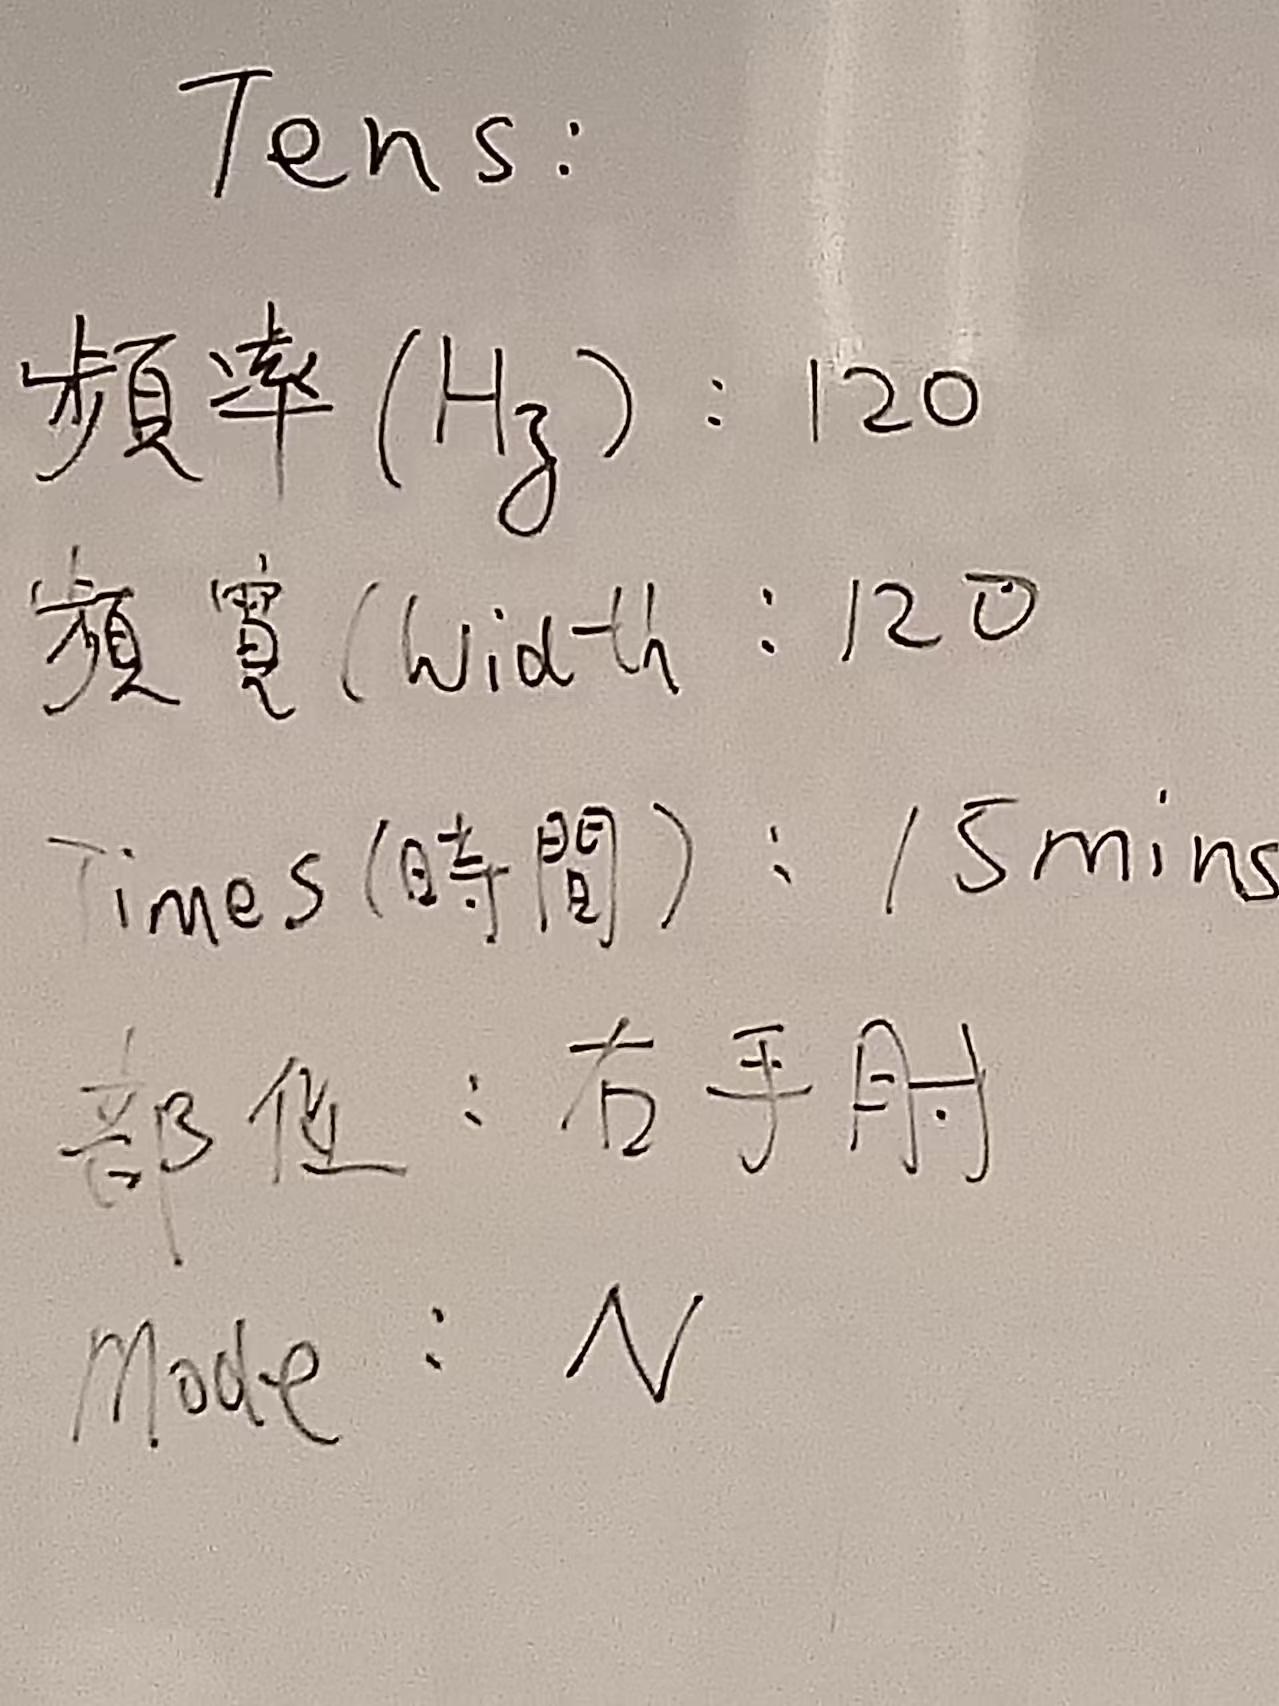 Tens:
頻率(Hz): 120
頻寬(Width : 120
Times(時間): 15mins
部位: 右手肘
Mode: N